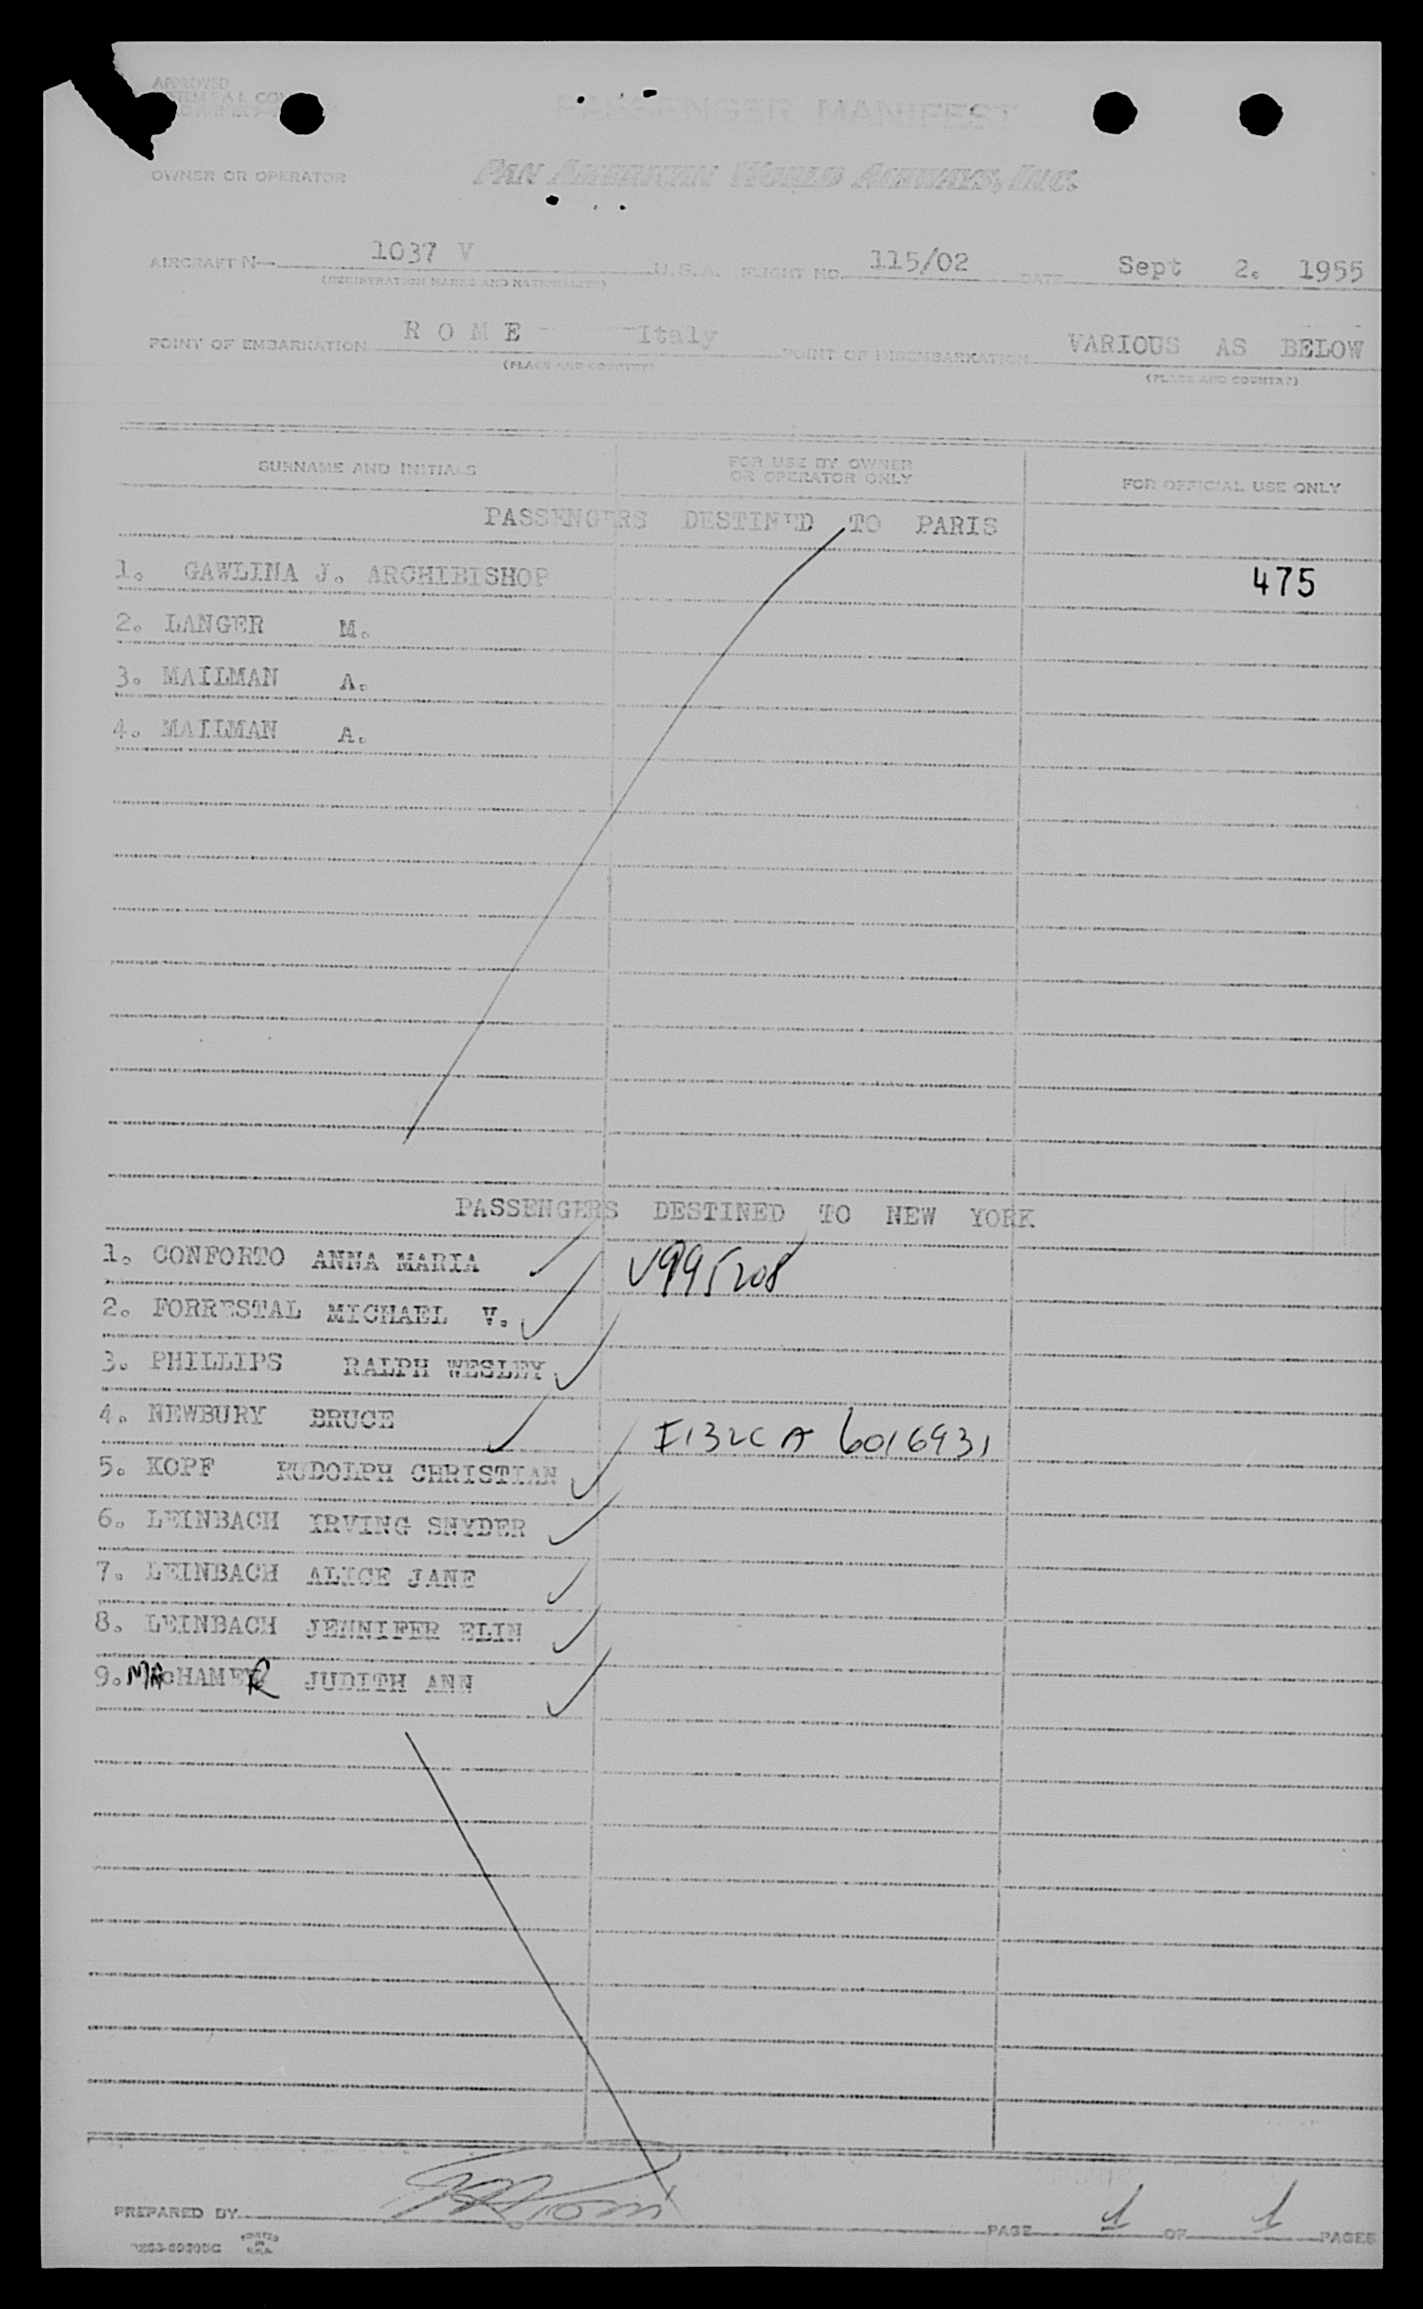 APPROVED
PASSENGER MANIFEST
OWNER OR OPERATOR PAN AMERICAN WORLD AIRWAYS, INC.
AIRCRAFT N— 1037 V U.S.A. FLIGHT NO. 115/02 DATE Sept 2. 1955
(REGISTRATION MARKS AND NATIONALITY)
POINT OF EMBARKATION R O M E - Italy POINT OF DISEMBARKATION VARIOUS AS BELOW
(PLACE AND COUNTRY) (PLACE AND COUNTRY)
SURNAME AND INITIALS FOR USE BY OWNER OR OPERATOR ONLY FOR OFFICIAL USE ONLY
PASSENGERS DESTINED TO PARIS
1. GAWLINA J. ARCHIBISHOP 475
2. LANGER M.
3. MAILMAN A.
4. MAILMAN A.
PASSENGERS DESTINED TO NEW YORK
1. CONFORTO ANNA MARIA V995208
2. FORRESTAL MICHAEL V.
3. PHILLIPS RALPH WESLEY
4. NEWBURY BRUCE I132CA 6016931
5. KOPF RUDOLPH CHRISTIAN
6. LEINBACH IRVING SNYDER
7. LEINBACH ALICE JANE
8. LEINBACH JENNIFER ELIN
9. MACHAMER JUDITH ANN
PREPARED BY PAGE 1 OF 1 PAGES